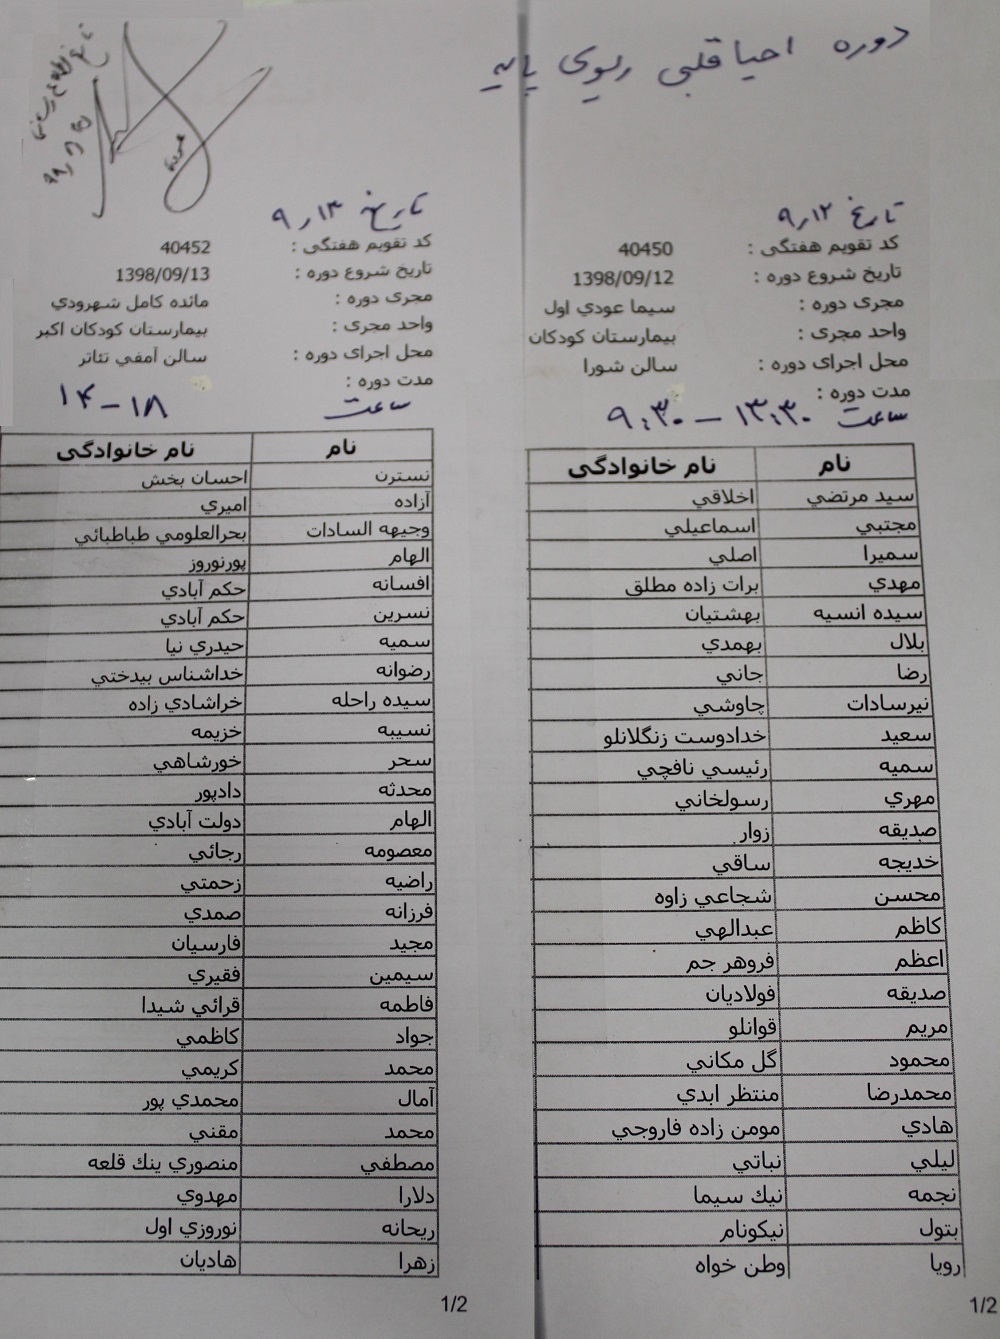 دوره احیا قلبی ریوی پایه
تاریخ ۹٫۱۲
کد تقویم هفتگی : 40450
تاریخ شروع دوره : 1398/09/12
مجری دوره : سيما عودي اول
واحد مجری : بيمارستان كودكان
محل اجرای دوره : سالن شورا
مدت دوره :
ساعت ۹:۳۰ – ۱۳:۳۰
نام نام خانوادگی
سيد مرتضي اخلاقي
مجتبي اسماعيلي
سميرا اصلي
مهدي برات زاده مطلق
سيده انسيه بهشتيان
بلال بهمدي
رضا جاني
نيرسادات چاوشي
سعيد خدادوست زنگلانلو
سميه رئيسي نافچي
مهري رسولخاني
صديقه زوار
خديجه ساقي
محسن شجاعي زاوه
كاظم عبدالهي
اعظم فروهر جم
صديقه فولاديان
مريم قوانلو
محمود گل مكاني
محمدرضا منتظر ابدي
هادي مومن زاده فاروجي
ليلي نباتي
نجمه نيك سيما
بتول نيكونام
رويا وطن خواه
1/2
تاریخ ۹٫۱۳
کد تقویم هفتگی : 40452
تاریخ شروع دوره : 1398/09/13
مجری دوره : مائده كامل شهرودي
واحد مجری : بيمارستان كودكان اكبر
محل اجرای دوره : سالن آمفي تئاتر
مدت دوره :
ساعت ۱۴ – ۱۸
نام نام خانوادگی
نسترن احسان بخش
آزاده اميري
وجيهه السادات بحرالعلومي طباطبائي
الهام پورنوروز
افسانه حكم آبادي
نسرين حكم آبادي
سميه حيدري نيا
رضوانه خداشناس بيدختي
سيده راحله خراشادي زاده
نسيبه خزيمه
سحر خورشاهي
محدثه دادپور
الهام دولت آبادي
معصومه رجائي
راضيه زحمتي
فرزانه صمدي
مجيد فارسيان
سيمين فقيري
فاطمه قرائي شيدا
جواد كاظمي
محمد كريمي
آمال محمدي پور
محمد مقني
مصطفي منصوري ينك قلعه
دلارا مهدوي
ريحانه نوروزي اول
زهرا هاديان
1/2